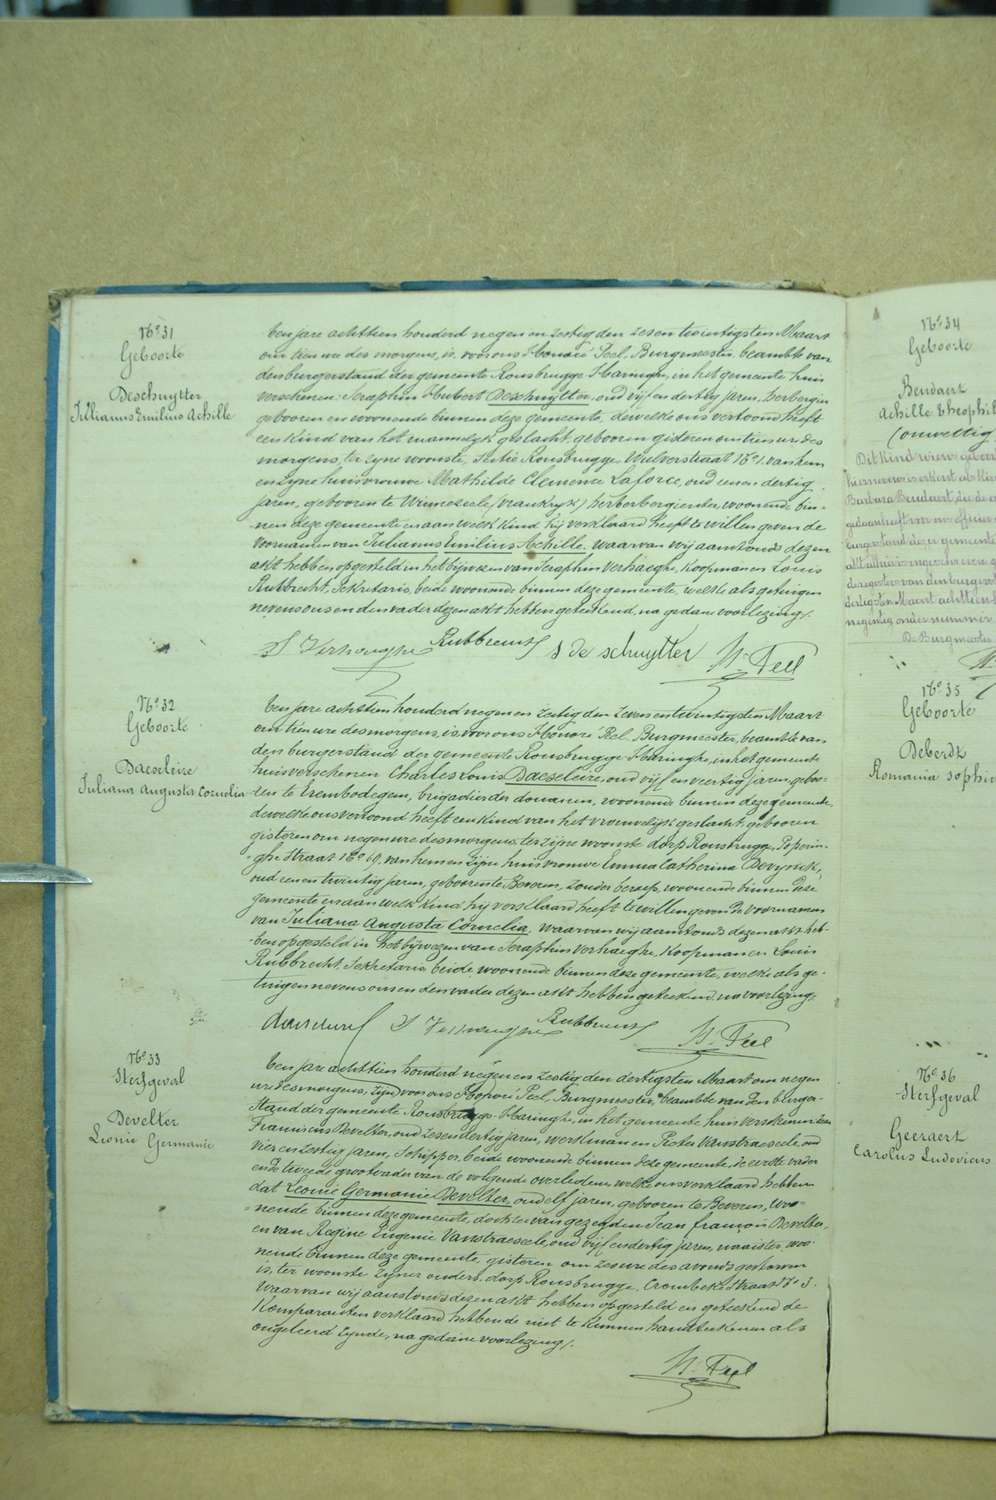 N° 31
Geboorte
Deschuytter
Jullianus Emilius Achille
Ten jare achttien honderd negen en zestig den zesentwintigsten Maart
om tien ure des morgens, is voor ons Honoré Feel, Burgmeester, beambte van
den burgerstand der gemeente Rousbrugge-Haringhe, in het gemeente huis
verschenen Seraphin Hubert Deschuytter, oud vijf en dertig jaren, herbergier
geboren en woonende binnen deze gemeente, dewelke ons vertoond heeft
een kind van het mannelijk geslacht, geboren gisteren om tien ure des
morgens, ter zyne woonste, Rousbrugge, Weverstraat N° 1. van hem
en zyne huisvrouwe Mathilde Clemence Laforce, oud een en dertig
jaren, geboren te Winnezeele (Vrankryk) herbergierster, woonende bin-
nen deze gemeente en aan welk kind hij verklaard heeft te willen geven de
voornamen van Julianus Emilius Achille, waarvan wij aanstonds dezen
akt hebben opgesteld in het bijwezen van Seraphin Verhaeghe, Koopman en Louis
Rubbrecht, Sekretaris, beide woonende binnen deze gemeente, welke als getuigen
nevens ons en den vader dezen akt hebben geteekend, na gedane voorlezing.
S Verhaeghe Rubbrecht S de schuytter H. Feel
N° 32
Geboorte
Daeseleire
Juliana Augusta Cornelia
Ten jare achttien honderd negen en zestig den zevenentwintigsten Maart
om tien ure des morgens, is voor ons Honoré Feel, Burgmeester, beambte van
den burgerstand der gemeente Rousbrugge-Haringhe, in het gemeente
huis verschenen Charles Louis Daeseleire, oud vijf en veertig jaren, gebo-
ren te Erembodegem, brigadier der douanen, woonende binnen deze gemeente,
dewelke ons vertoond heeft een kind van het vrouwelijk geslacht, geboren
gisteren om negen ure des morgens, ter zijne woonste dorp Rousbrugge, Poperin-
ghe Straat N° 69, van hem en zijne huisvrouwe Emma Catherina Derynck,
oud een en twintig jaren, geboren te Beveren, zonder beroep, woonende binnen deze
gemeente en aan welk kind hij verklaard heeft te willen geven de voornamen
van Juliana Augusta Cornelia, waarvan wij aanstonds dezen akt heb-
ben opgesteld in het bijwezen van Seraphin Verhaeghe, Koopman en Louis
Rubbrecht, Sekretaris beide woonende binnen deze gemeente, welke als ge-
tuigen nevens ons en den vader dezen akt hebben geteekend, na voorlezing.
S Verhaeghe Rubbrecht H. Feel
N° 33
Sterfgeval
Develter
Leonie Germanie
Ten jare achttien honderd negen en zestig den dertigsten Maart om negen
ure des morgens, zijn voor ons Honoré Feel, Burgmeester, beambte van den burger-
stand der gemeente Rousbrugge-Haringhe, in het gemeente huis verschenen Jean
Franciscus Develter, oud zesendertig jaren, werkman en Pieter Vanstraeseele, oud
vier en zestig jaren, Schipper, beide woonende binnen deze gemeente, de eerste vader
en de tweede grootvader van de volgende overledene, welke ons verklaard hebben
dat Leonie Germanie Develter, oud elf jaren, geboren te Beveren, woo-
nende binnen deze gemeente, dochter van gezegden Jean François Develter,
en van Regine Eugenie Vanstraeseele, oud vijf en dertig jaren, naaister, woo-
nende binnen deze gemeente, gisteren om zes ure des avonds gestorven
is, ter woonste zijner ouders, dorp Rousbrugge, Crombeke Straat N° 3.
Waarvan wij aanstonds dezen akt hebben opgesteld en geteekend de
Komparanten verklaard hebbende niet te kunnen handteekenen als
ongeleerd zynde, na gedane voorlezing.
H. Feel
N° 34
Geboorte
Bendaert
Achille Theophil
(onwettig
Dit kind
N° 35
Geboorte
Deberdt
Romania Sophie
N° 36
Sterfgeval
Geeraert
Carolus Ludovicus